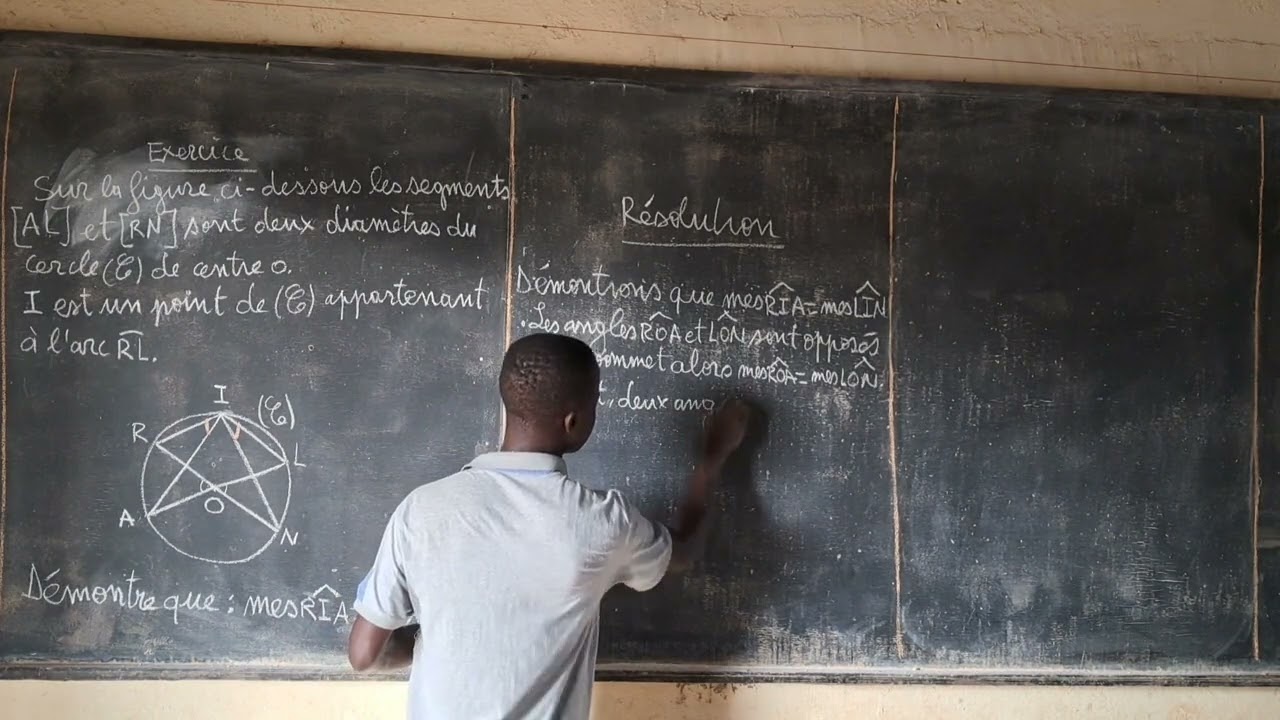 Exercice
Sur la figure ci-dessous les segments
[AL] et [RN] sont deux diamètres du
cercle (C) de centre O.
I est un point de (C) appartenant
à l'arc R͡L.
I
(C)
R
L
O
A
N
Démontre que : mes RÎA
Résolution
Démontrons que mes RÎA = mes LÎN
. Les angles RÔA et LÔN sont opposés
sommet alors mes RÔA = mes LÔN.
, deux ang